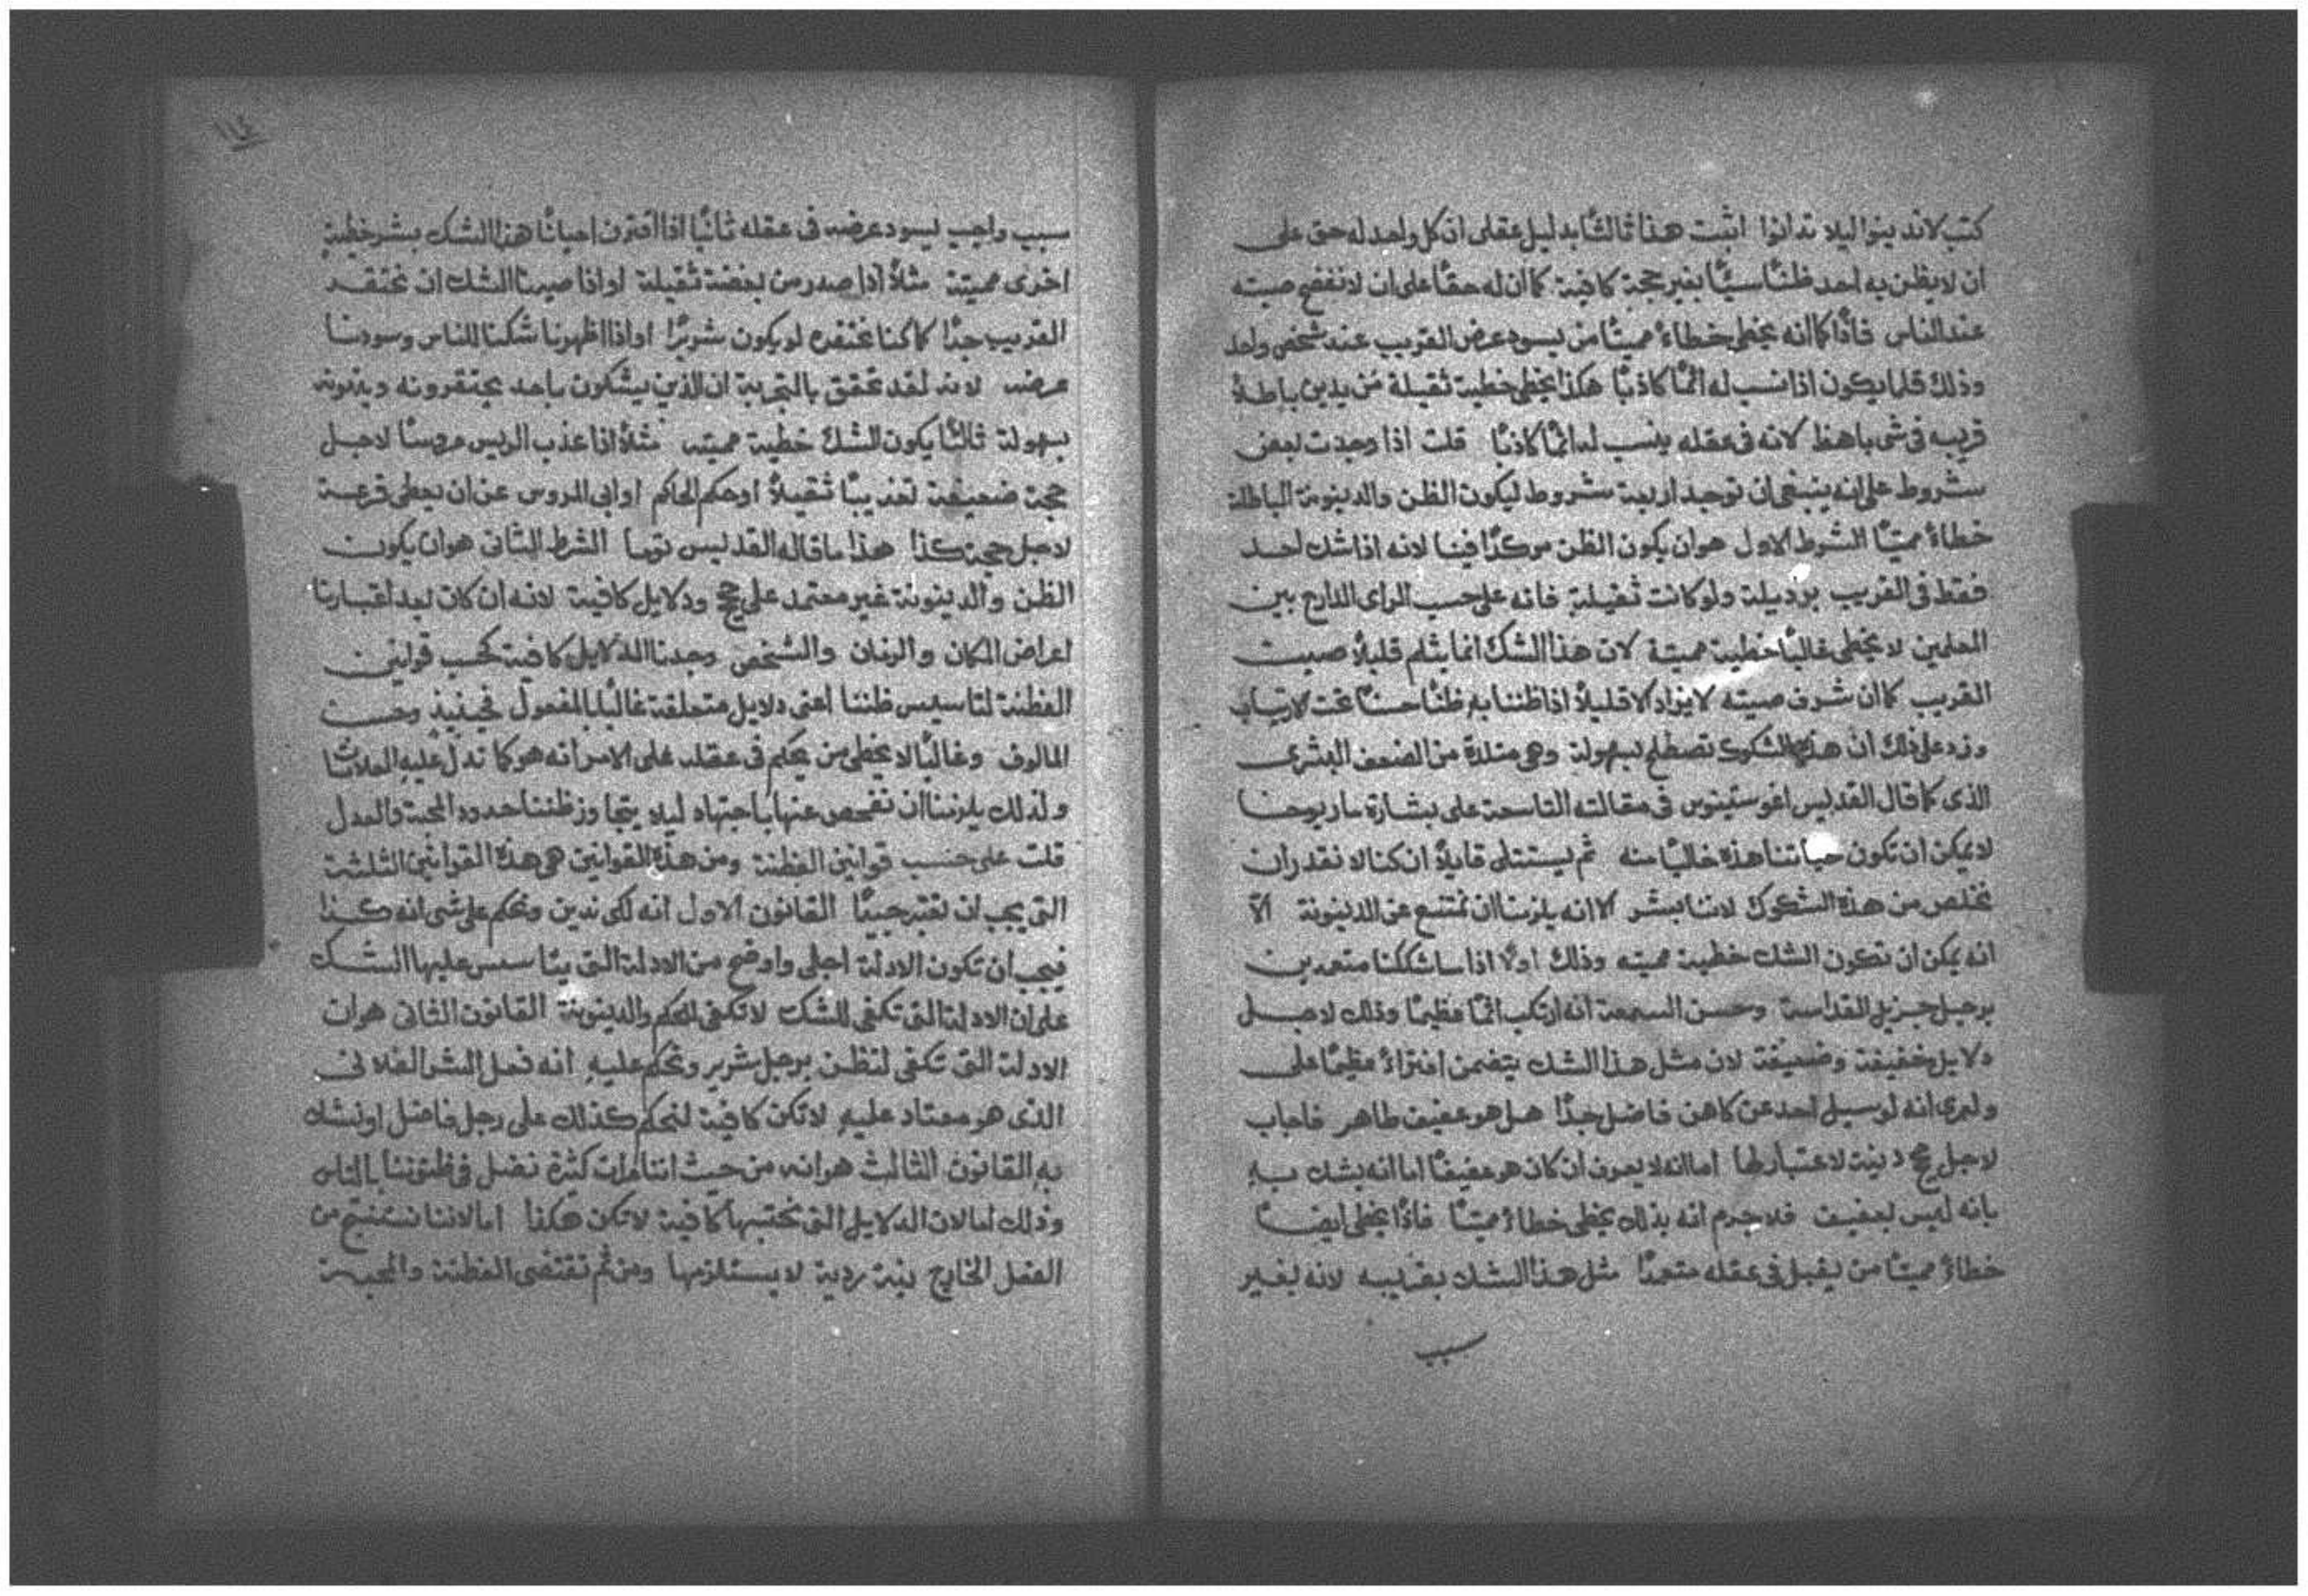 كتب لا تدينوا ليلا تدانوا اثبت هذا ثالثًا بدليل عقلى ان كل واحد له حق على
ان لا يظن به احد ظنًا سيًا بغير حجة كافية كما ان له حقًا على ان لا نفضح صيته
عند الناس فاذًا كما انه يخطى خطاءً مميتًا من يسود عرض القريب عند شخص واحد
وذلك قلما يكون اذا نسب له اثمًا كاذبًا هكذا يخطى خطية ثقيلة من يدين باطلاً
قريبه فى شى باهظ لانه فى عقله ينسب له اثمًا كاذبًا قلت اذا وجدت بعض
شروط على انه ينبغى ان توجد اربعة شروط ليكون الظن والدينونة الباطلة
خطاءً مميتًا الشرط الاول هو ان يكون الظن موكدًا فينا لانه اذا شك احد
فقط فى القريب برذيلة ولو كانت ثقيلة فانه على حسب الراى الدارج بين
المعلمين لا يخطى غالبًا خطية مميتة لان هذا الشك انما يثلم قليلاً صيت
القريب كما ان شرف صيته لا يزاد الا قليلاً اذا ظننا به ظنًا حسنًا تحت الارتياب
وزد على ذلك ان هذه الشكوك تصطلح بسهولة وهى متلدة من الضعف البشرى
الذى كما قال القديس اغوستينوس فى مقالته التاسعة على بشارة مار يوحنا
لا يمكن ان تكون حياتنا هذه خاليًا منه ثم يستتلى قايلاً ان كنا لا نقدر ان
نخلص من هذه الشكوك لاننا بشر الا انه يلزمنا ان نمتنع عن الدينونة الّا
انه يمكن ان تكون الشك خطية مميته وذلك اولاً اذا ما شككنا متعمدين
برجل جزيل القداسة وحسن السمعة انه ارتكب اثمًا عظيمًا وذلك لاجل
دلايل خفيفة وضعيفة لان مثل هذا الشك يتضمن افتراءً عظيمًا على
ولمرى انه لو سيل احد عن كاهن فاضل جدًا هل هو عفيف طاهر فاجاب
لاجل حجج دنية لا اعتبار لها اما انه لا يعرف ان كان هو عفيفًا اما انه يشك به
بانه ليس بعفيف فلا جرم انه بذلك يخطى خطاءً مميتًا فاذًا يخطى ايضًا
خطاءً مميتًا من يقبل فى عقله متعمدًا مثل هذا الشك بقريبه لانه لغير
سبب
١١٤
سبب واجب يسود عرضه فى عقله ثانيًا اذا اقترن احيانًا هذا الشك بشر خطية
اخرى مميتة مثلاً اذا صدر من بغضة ثقيلة او اذا صيرنا الشك ان نحتقد
القريب جدًا كما كنا نحتقره لو يكون شريرًا او اذا اظهرنا شكنا للناس وسودنا
عرضه لانه لقد تحقق بالتجربة ان الذين يشكون باحد يحتقرونه ويدينونه
بسهولة ثالثًا يكون الشك خطية مميته مثلاً اذا عذب الريس مروسًا لاجل
حجة ضعيفة تعذيبًا ثقيلاً او حكم الحاكم او ابى المروس عن ان يعطى قرعة
لاجل حجة كذا هذا ما قاله القديس توما الشرط الثانى هو ان يكون
الظن والدينونة غير معتمد على حجج ودلايل كافية لانه ان كان بعد اعتبارنا
اعراض المكان والزمان والشخص وجدنا الدلايل كافية كحسب قوانين
الفطنة لتاسيس ظننا اعنى دلايل متعلقة غالبًا بالمفعول فحينيذٍ وحسب
المالوف وغالبًا لا يخطى من يحكم فى عقله على الامر انه هو كما تدل عليه العلامات
ولذلك يلزمنا ان نفحص عنها باجتهاد ليلا يتجاوز ظننا حدود المحبة والعدل
قلت على حسب قوانين الفطنة ومن هذه القوانين هى هذه القوانين الثلثة
التى يجب ان تعتبر جيدًا القانون الاول انه لكى ندين ونحكم على شى انه كذا
فيجب ان تكون الادلة اجلى واوضح من الادلة التى يتاسس عليها الشك
على ان الادلة التى تكفى للشك لا تكفى للحكم والدينونة القانون الثانى هو ان
الادلة التى تكفى لنظن برجل شرير ونحكم عليه انه فعل الشر الفلانى
الذى هو معتاد عليه لا تكن كافية لنحكم كذلك على رجل فاضل او نشك
به القانون الثالث هو انه من حيث اننا مرات كثيرة نضل فى ظنوننا بالناس
وذلك اما لان الدلايل التى نحتسبها كافية لا تكن هكذا اما لاننا نستنتج من
الفعل الخارج بنية ردية لا يستلزمها ومن ثم تقتضى الفطنة والمحبة